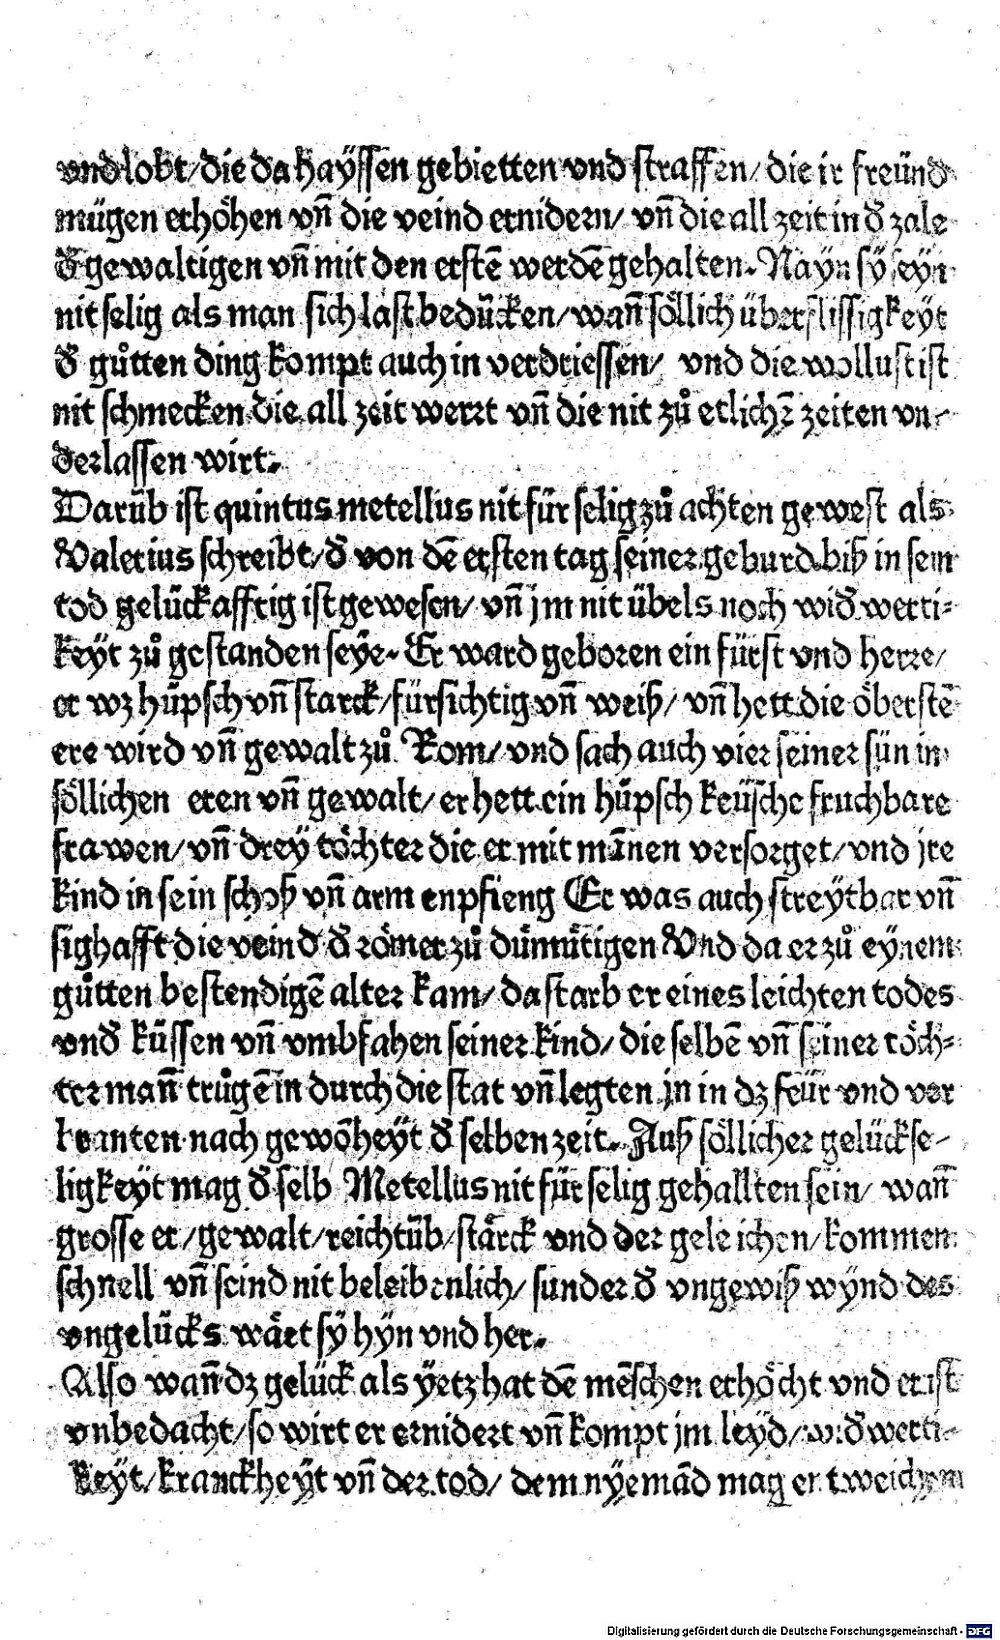 vnd lobt/die da hayſſen gebietten vnd ſtraffen/ die ir freünd
mügen erhöhen vñ die veind ernidern/ vñ die all zeit in đ zale
đ gewaltigen vñ mit den erſtē werdē gehalten. Nayn ſÿ ſeyn
nit ſelig als man ſich laſt bedūcken/wañ ſöllich überfliſſigkeyt
đ gůtten ding kompt auch in verdrieſſen/ vnd die wolluſt iſt
nit ſchmecken die all zeit werrt vñ die nit zů etlichē zeiten vn⸗
derlaſſen wirt.
Darūb iſt quintus metellus nit für ſelig zů achten geweſt als
Valerius ſchreibt/đ von dē erſten tag ſeiner geburd biß in ſein
tod gelückafftig iſt geweſen/ vñ jm nit übels noch widđwerti⸗
keyt zů geſtanden ſeye. Er ward geboren ein fürſt vnd herre/
er wz hüpſch vñ ſtarck/fürſichtig vñ weiß/ vñ hett die öberſtē
ere wird vñ gewalt zů Rom/ vnd ſach auch vier ſeiner ſün in
ſöllichen eren vñ gewalt/er hett ein hüpſch keüſche fruchbare
frawen/vñ drey töchter die er mit mānen verſorget/vnd jre
kind in ſein ſchoß vñ arm enpfieng Er was auch ſtreytbar vñ
ſighafft die veind đ römer zů dümütigen Vnd da er zů eynem
gůtten beſtendigē alter kam/ da ſtarb er eines leichten todes
vnđ küſſen vñ vmbfahen ſeiner kind/ die ſelbē vñ ſeiner töch⸗
ter mañ trůgē in durch die ſtat vñ legten jn in dz feür vnd ver
branten nach gewōheyt đ ſelben zeit. Auß ſöllicher gelückſe⸗
ligkeyt mag đ ſelb Metellus nit für ſelig gehallten ſein/ wañ
groſſe er/gewalt/reichtūb/ſtärck vnd der geleichen/kommen
ſchnell vñ ſeind nit beleibenlich/ ſunder đ vngewiß wynd des
vngelücks wäet ſÿ hyn vnd her.
Alſo wañ dz gelück als ÿetz hat dē mēſchen erhöcht vnd er iſt
vnbedacht/ſo wirt er ernidert vñ kompt jm leyd/widđwerti⸗
keyt/kranckheyt vñ der tod/ dem nyemād mag entweichen
Digitalisierung gefördert durch die Deutsche Forschungsgemeinschaft - DFG